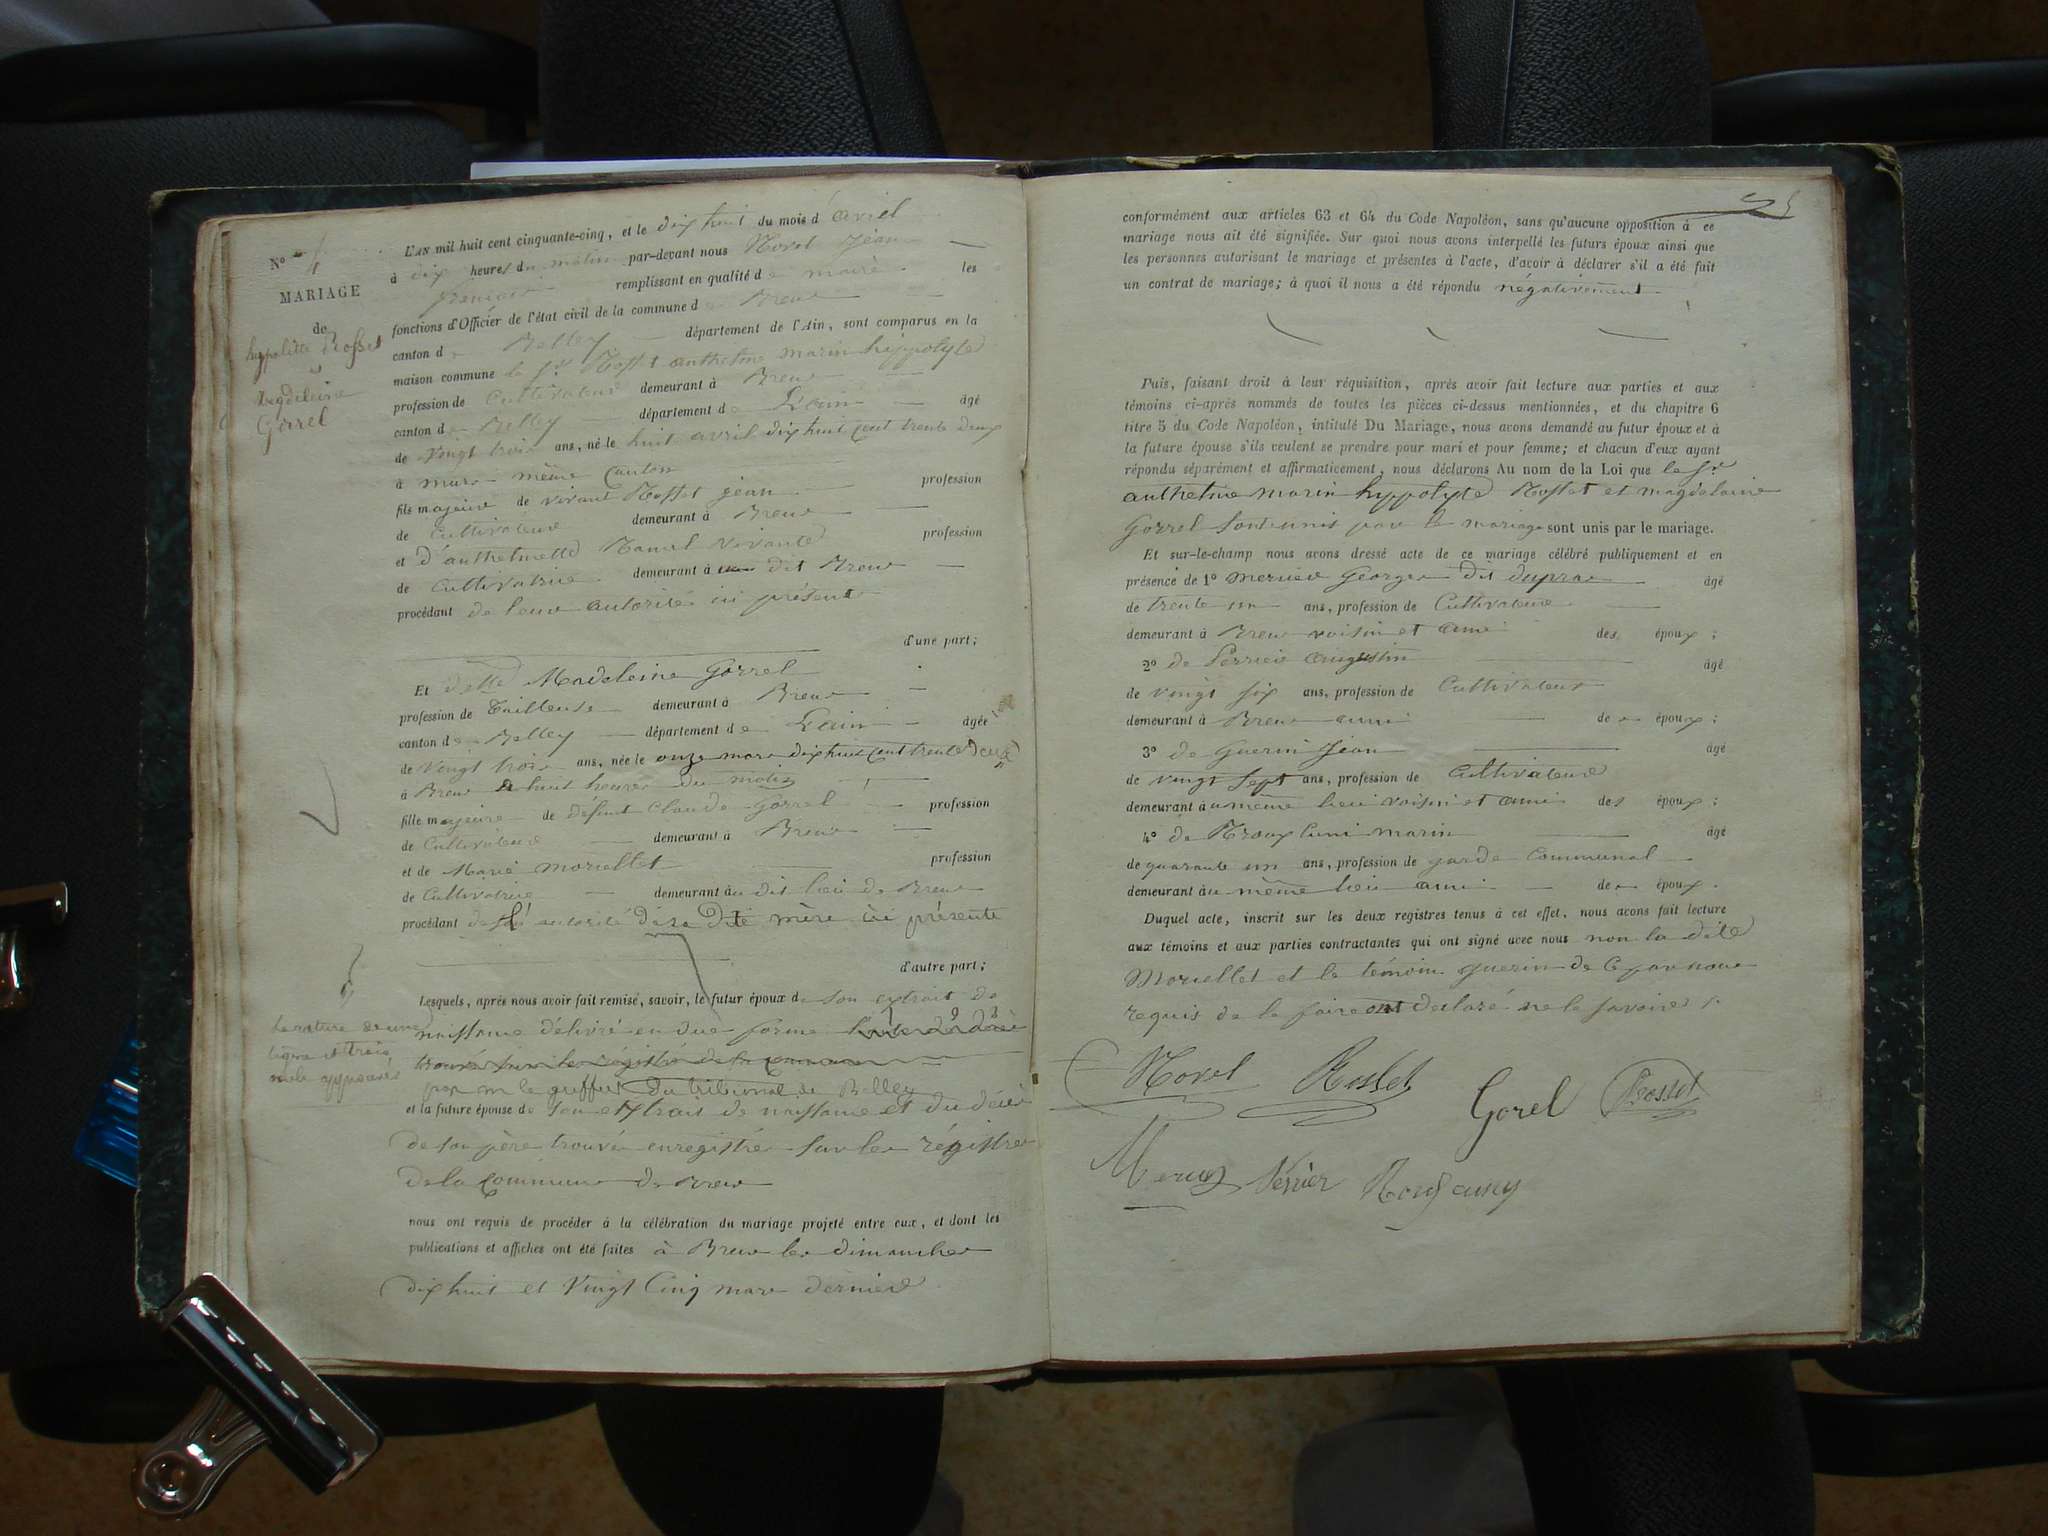 N° 4
MARIAGE
de
hypolitte Rosset
et
Magdeleine
Gorrel
L'AN mil huit cent cinquante-cinq, et le dix huit du mois d'avril
à dix heures du matin par-devant nous Hovel Jean
remplissant en qualité de maire les
fonctions d'Officier de l'état civil de la commune d Brens
canton de Belley département de l'Ain, sont comparus en la
maison commune le Sr Rosset anthelme marin hippolyte
profession de Cultivateur demeurant à Brens
canton de Belley département de L'ain âgé
de Vingt trois ans, né le huit avril dix huit cent trente deux
à murs même Canton
fils majeur de vivant Rosset jean profession
de Cultivateur demeurant à Brens
et d'anthelmette vivante profession
de Cultivatrice demeurant à dit Brens
procédant de leur autorité ici présents
d'une part;
Et delle Madeleine Gorrel
profession de Tailleuse demeurant à Brens
canton de Belley département de L'ain âgée
de Vingt trois ans, née le onze mars dix huit cent trente deux
à Brens à huit heures du matin
fille majeure de défunt Claude Gorrel profession
de Cultivateur demeurant à Brens
et de Marie moriellet profession
de Cultivatrice demeurant au dit lieu de Brens
procédant de l'autorité de sa dite mère ici présente
d'autre part;
Lesquels, après nous avoir fait remise, savoir, le futur époux de son extrait de
naissance délivré en due forme
trouvé sur le régistre de la commune
par m le greffier du tribunal de Belley
la rature de une
ligne et trois
mots approuvés
et la future épouse de son extrait de naissance et du décès
de son père trouvés enregistrés sur les régistres
de la Commune de Brens
nous ont requis de procéder à la célébration du mariage projeté entre eux, et dont les
publications et affiches ont été faites à Brens les dimanches
dix huit et Vingt Cinq mars dernier
conformément aux articles 63 et 64 du Code Napoléon, sans qu'aucune opposition à ce
mariage nous ait été signifiée. Sur quoi nous avons interpellé les futurs époux ainsi que
les personnes autorisant le mariage et présentes à l'acte, d'avoir à déclarer s'il a été fait
un contrat de mariage; à quoi il nous a été répondu négativement
Puis, faisant droit à leur réquisition, après avoir fait lecture aux parties et aux
témoins ci-après nommés de toutes les pièces ci-dessus mentionnées, et du chapitre 6
titre 5 du Code Napoléon, intitulé Du Mariage, nous avons demandé au futur époux et à
la future épouse s'ils veulent se prendre pour mari et pour femme; et chacun d'eux ayant
répondu séparément et affirmativement, nous déclarons Au nom de la Loi que le Sr
anthelme marin hyppolyte Rosset et magdelaine
Gorrel sont unis par le mariage sont unis par le mariage.
Et sur-le-champ nous avons dressé acte de ce mariage célébré publiquement et en
présence de 1° mercier George dit dupras âgé
de trente un ans, profession de Cultivateur
demeurant à Brens voisin et ami des époux;
2° de Perrier augustin âgé
de vingt six ans, profession de Cultivateur
demeurant à Brens ami des époux;
3° de Guerin Jean âgé
de vingt sept ans, profession de Cultivateur
demeurant au même lieu voisin et ami des époux;
4° de marin âgé
de quarante un ans, profession de garde Communal
demeurant au même lieu ami des époux.
Duquel acte, inscrit sur les deux registres tenus à cet effet, nous avons fait lecture
aux témoins et aux parties contractantes qui ont signé avec nous non la dite
Moriellet et le témoin guerin de ce par nous
requis de le faire ont déclaré ne le savoir
Hovel Rosset Gorel Rosset